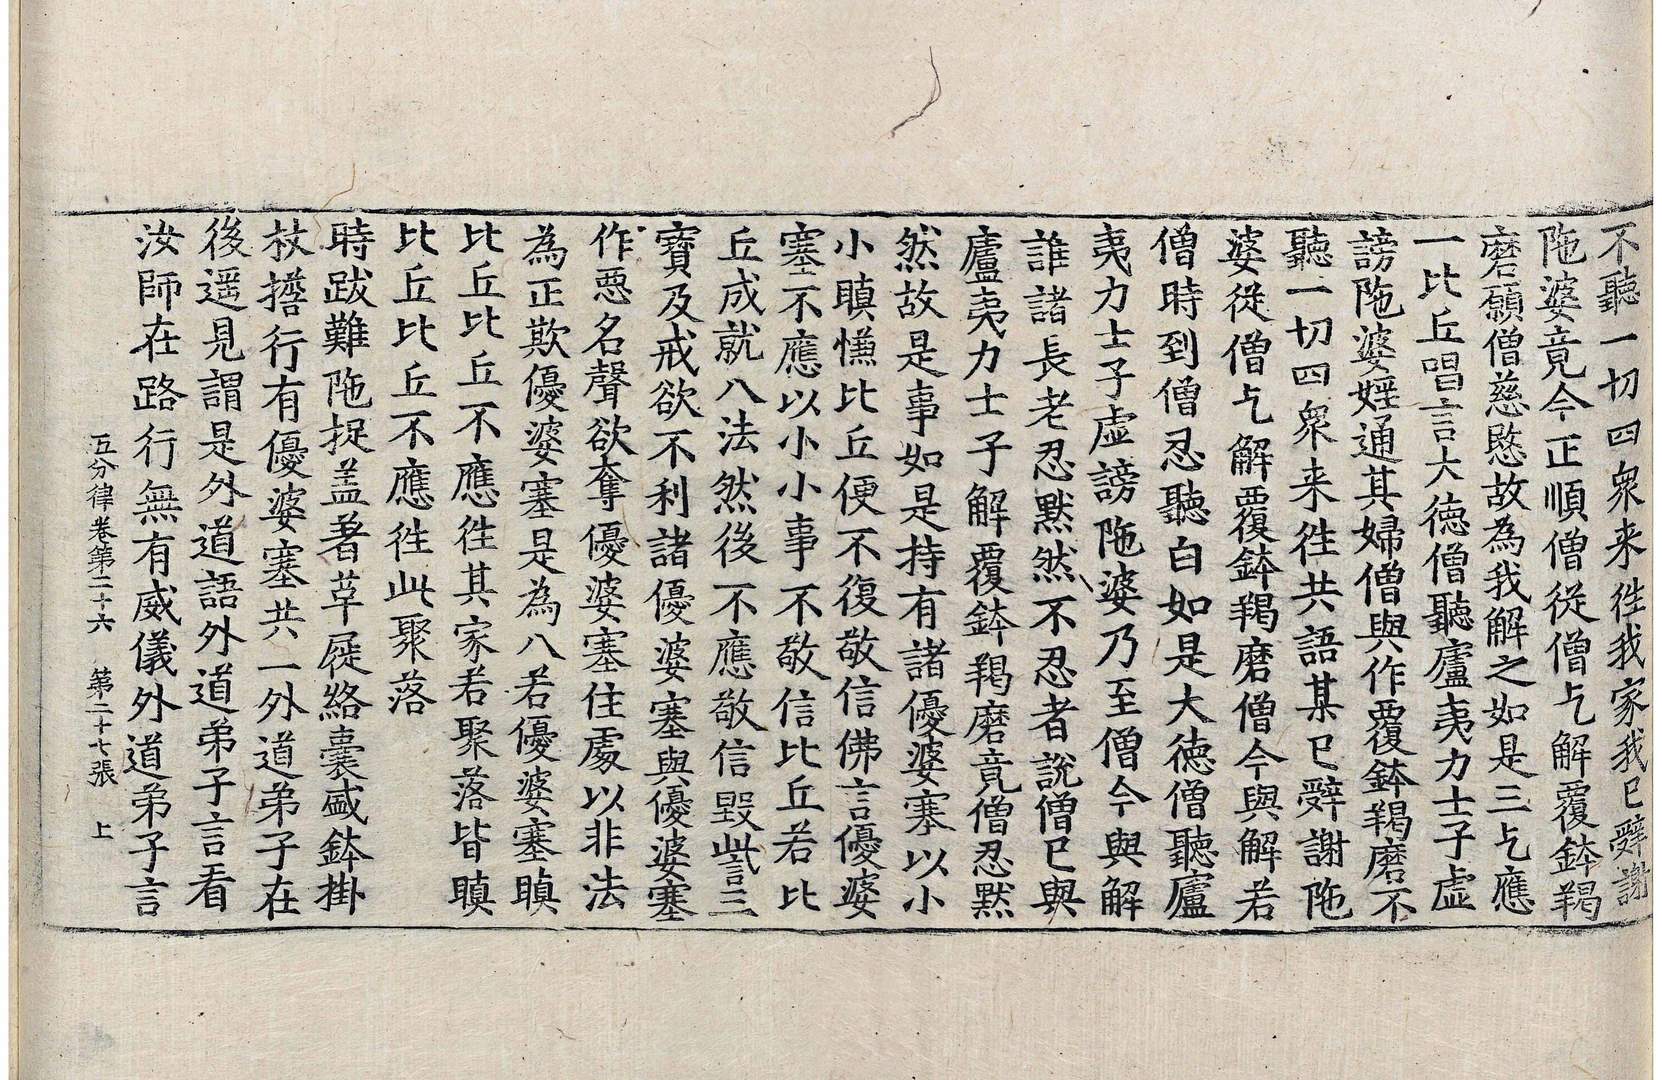 不聽一切四衆来徃我家我已辤謝
陁婆竟今正順僧從僧乞解覆鉢羯
磨願僧慈愍故為我解之如是三乞應
一比丘唱言大徳僧聽廬夷力士子虛
謗陁婆婬通其婦僧與作覆鉢羯磨不
聽一切四衆来徃共語某已辤謝陁
婆從僧乞解覆鉢羯磨僧今與解若
僧時到僧忍聽白如是大徳僧聽廬
夷力士子虛謗陁婆乃至僧今與解
誰諸長老忍默然不忍者說僧已與
廬夷力士子解覆鉢羯磨竟僧忍默
然故是事如是持有諸優婆塞以小
小瞋慊比丘便不復敬信佛言優婆
塞不應以小小事不敬信比丘若比
丘成就八法然後不應敬信毀呰三
寶及戒欲不利諸優婆塞與優婆塞
作惡名聲欲奪優婆塞住處以非法
為正欺優婆塞是為八若優婆塞瞋
比丘比丘不應徃其家若聚落皆瞋
比丘比丘不應徃此聚落
時跋難陁捉盖著草屣絡囊盛鉢掛
杖擔行有優婆塞共一外道弟子在
後遥見謂是外道語外道弟子言看
汝師在路行無有威儀外道弟子言
五分律卷第二十六　第二十七張　上